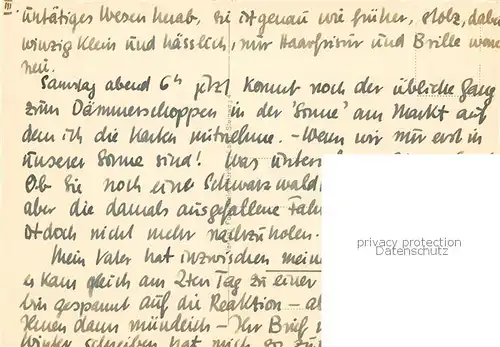 III
untätiges Wesen herab, sie ist genau wie früher, stolz, dabei
winzig klein und hässlich, nur Haarfrisur und Brille waren
neu.
Samstag abend 6h jetzt kommt noch der übliche Gang
zum Dämmerschoppen in der 'Sonne' am Markt auf
dem ich die Karten mitnehme. - Wenn wir nur erst in
unserer Sonne sind! Was
Ob Sie noch eine Schwarzwald
aber die damals ausgefallene
ist doch nicht mehr nachzuholen.
Mein Vater hat inzwischen
er kam gleich am 2ten Tag zu einer
bin gespannt auf die Reaktion -
Ihnen dann mündlich - Ihr Brief
Winter schreiben hat mich so
privacy protection
www.ansichtskarten-center.de